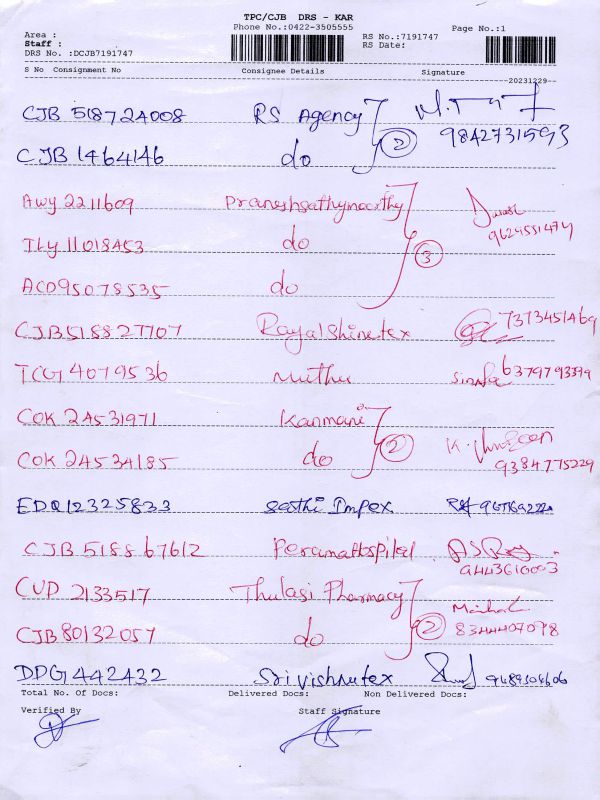 TPC/CJB DRS - KAR
Phone No.:0422-3505555
Page No.:1
Area :
Staff :
RS No.:7191747
DRS No. :DCJB7191747
RS Date:
S No Consignment No Consignee Details Signature
20231229
CJB 518724008 RS Agency
9842731593
CJB 1464146 do 2
Awy 2211609 Praneshsathymoorthy
9624551474
TLY 11018453 do 3
ACD95078535 do
CJB518827707 Royalshinetex 7373451469
TCG 4079536 Muthu 6379793399
COK 24531971 Kanmani
COK 24534185 do 2 9384775229
EDQ12325833 Sasthi Impex
CJB 518867612
9443610003
CUD 2133517 Thulasi Pharmacy
CJB80132057 do 2 8344407098
DPG442432 Srivishnutex 9489504606
Total No. Of Docs: Delivered Docs: Non Delivered Docs:
Verified By Staff Signature